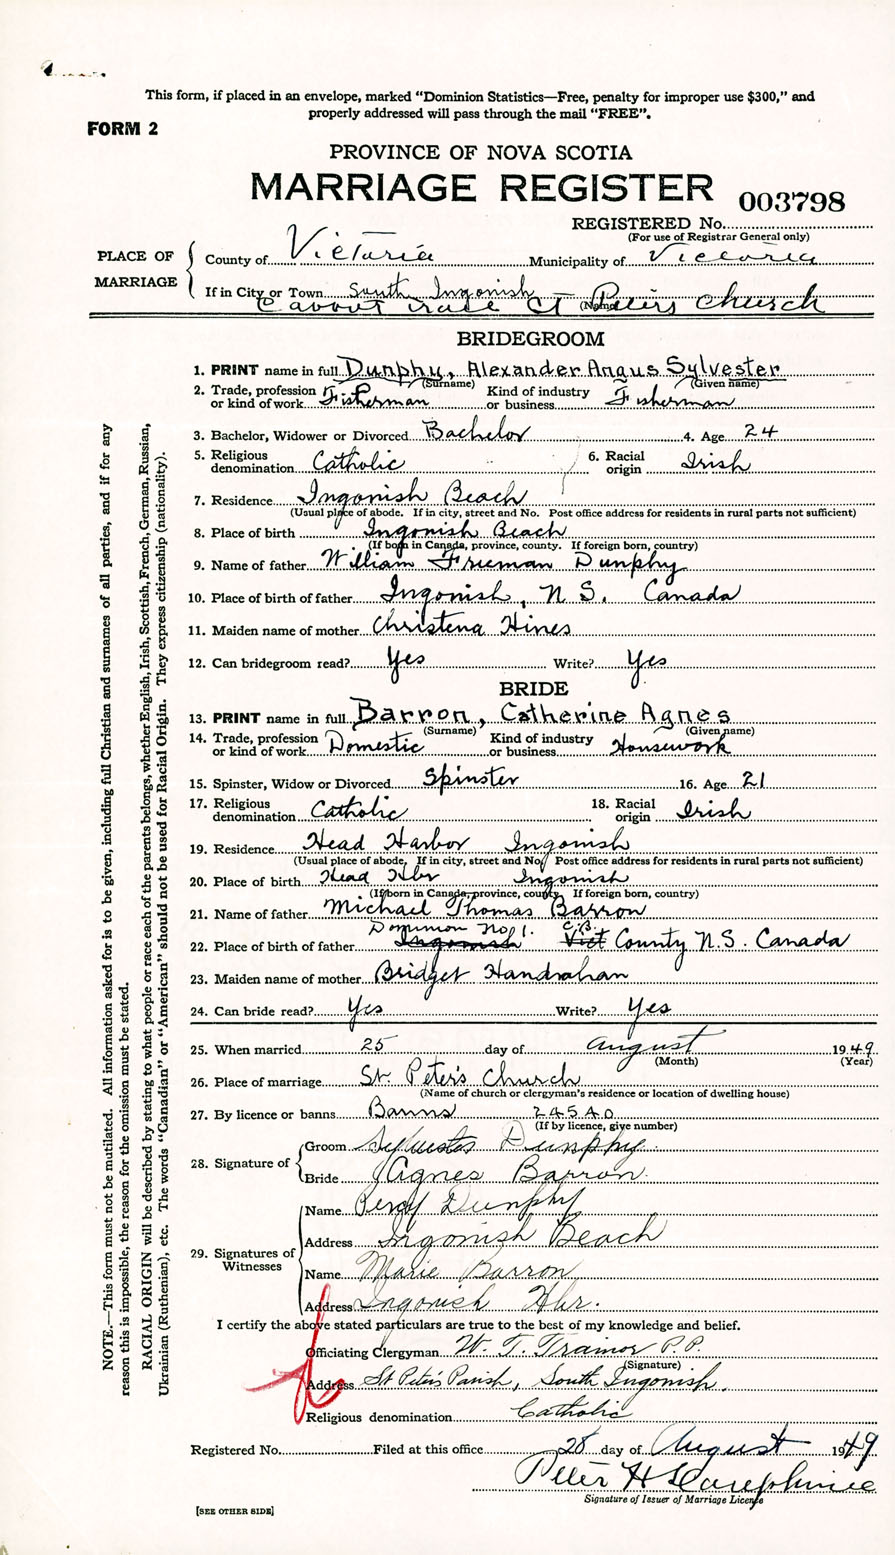 This form, if placed in an envelope, marked "Dominion Statistics—Free, penalty for improper use $300," and
properly addressed will pass through the mail "FREE".
FORM 2
PROVINCE OF NOVA SCOTIA
MARRIAGE REGISTER 003798
REGISTERED No.
(For use of Registrar General only)
PLACE OF MARRIAGE
County of Victoria Municipality of Victoria
If in City or Town South Ingonish
(Name) St Peter's Church
BRIDEGROOM
1. PRINT name in full Dunphy, Alexander Angus Sylvester
(Surname) (Given name)
2. Trade, profession or kind of work Fisherman Kind of industry or business Fisherman
3. Bachelor, Widower or Divorced Bachelor 4. Age 24
5. Religious denomination Catholic 6. Racial origin Irish
7. Residence Ingonish Beach
(Usual place of abode. If in city, street and No. Post office address for residents in rural parts not sufficient)
8. Place of birth Ingonish Beach
(If born in Canada, province, county. If foreign born, country)
9. Name of father William Freeman Dunphy
10. Place of birth of father Ingonish, N.S. Canada
11. Maiden name of mother Christena Hines
12. Can bridegroom read? Yes Write? Yes
BRIDE
13. PRINT name in full Barron, Catherine Agnes
(Surname) (Given name)
14. Trade, profession or kind of work Domestic Kind of industry or business Housework
15. Spinster, Widow or Divorced Spinster 16. Age 21
17. Religious denomination Catholic 18. Racial origin Irish
19. Residence Head Harbor Ingonish
(Usual place of abode. If in city, street and No. Post office address for residents in rural parts not sufficient)
20. Place of birth Head Hbr Ingonish
(If born in Canada, province, county. If foreign born, country)
21. Name of father Michael Thomas Barron
Dominion No 1. C.B.
22. Place of birth of father Ingonish Vict County N.S. Canada
23. Maiden name of mother Bridget Handrahan
24. Can bride read? Yes Write? Yes
25. When married 25 day of August 1949
(Month) (Year)
26. Place of marriage St. Peter's Church
(Name of church or clergyman's residence or location of dwelling house)
27. By licence or banns Banns 24540
(If by licence, give number)
28. Signature of
Groom Sylvester Dunphy
Bride Agnes Barron
29. Signatures of Witnesses
Name Percy Dunphy
Address Ingonish Beach
Name Marie Barron
Address Ingonish Hbr.
I certify the above stated particulars are true to the best of my knowledge and belief.
Officiating Clergyman W. T. Trainor P.P.
(Signature)
Address St Peter's Parish, South Ingonish.
Religious denomination Catholic
Registered No. Filed at this office 28 day of August 1949
Peter H
Signature of Issuer of Marriage License
[SEE OTHER SIDE]
NOTE.—This form must not be mutilated. All information asked for is to be given, including full Christian and surnames of all parties, and if for any
reason this is impossible, the reason for the omission must be stated.
RACIAL ORIGIN will be described by stating to what people or race each of the parents belongs, whether English, Irish, Scottish, French, German, Russian,
Ukrainian (Ruthenian), etc. The words "Canadian" or "American" should not be used for Racial Origin. They express citizenship (nationality).